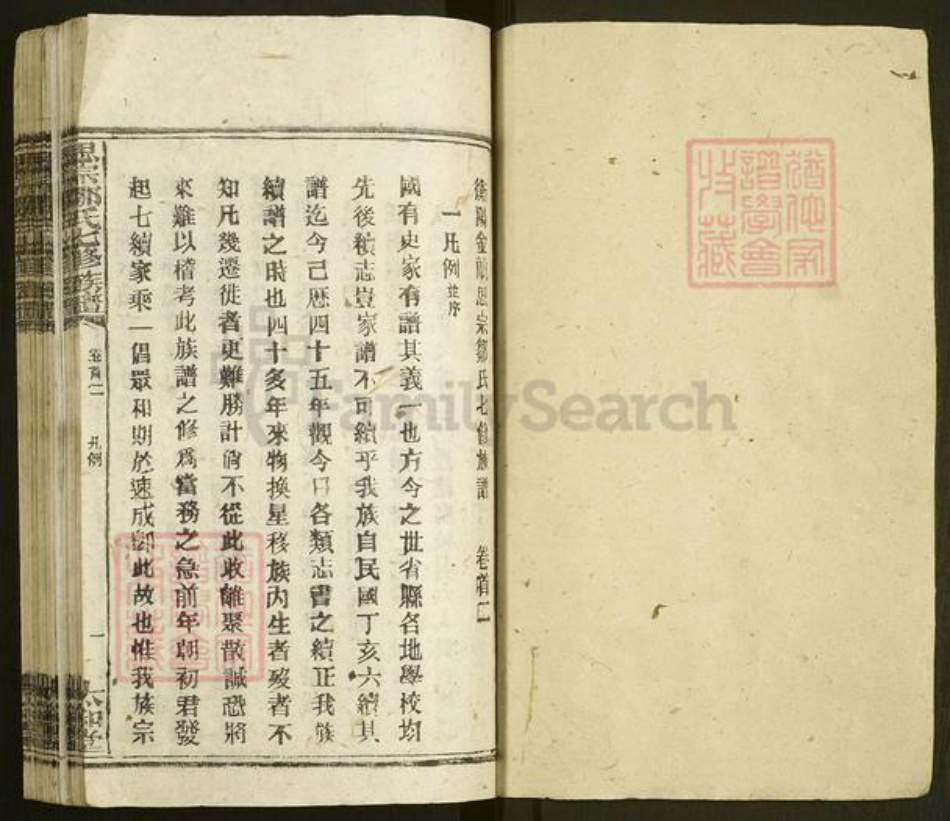 衡陽金蘭思宗鄒氏七修族譜 卷首二
一凡例並序
國有史家有譜其義一也方今之世省縣各地學校均
先後續志豈家譜不可續乎我族自民國丁亥六續其
譜迄今己歷四十五年觀今日各類志書之續正我族
續譜之時也四十多年來物換星移族內生者歿者不
知凡幾遷徙者更難勝計倘不從此收離聚散誠恐將
來難以稽考此族譜之修爲當務之急前年朝初君發
起七續家乘一倡眾和則於速成卽此故也惟我族宗
思宗鄒氏七修族譜
卷首二
凡例
一
FamilySearch